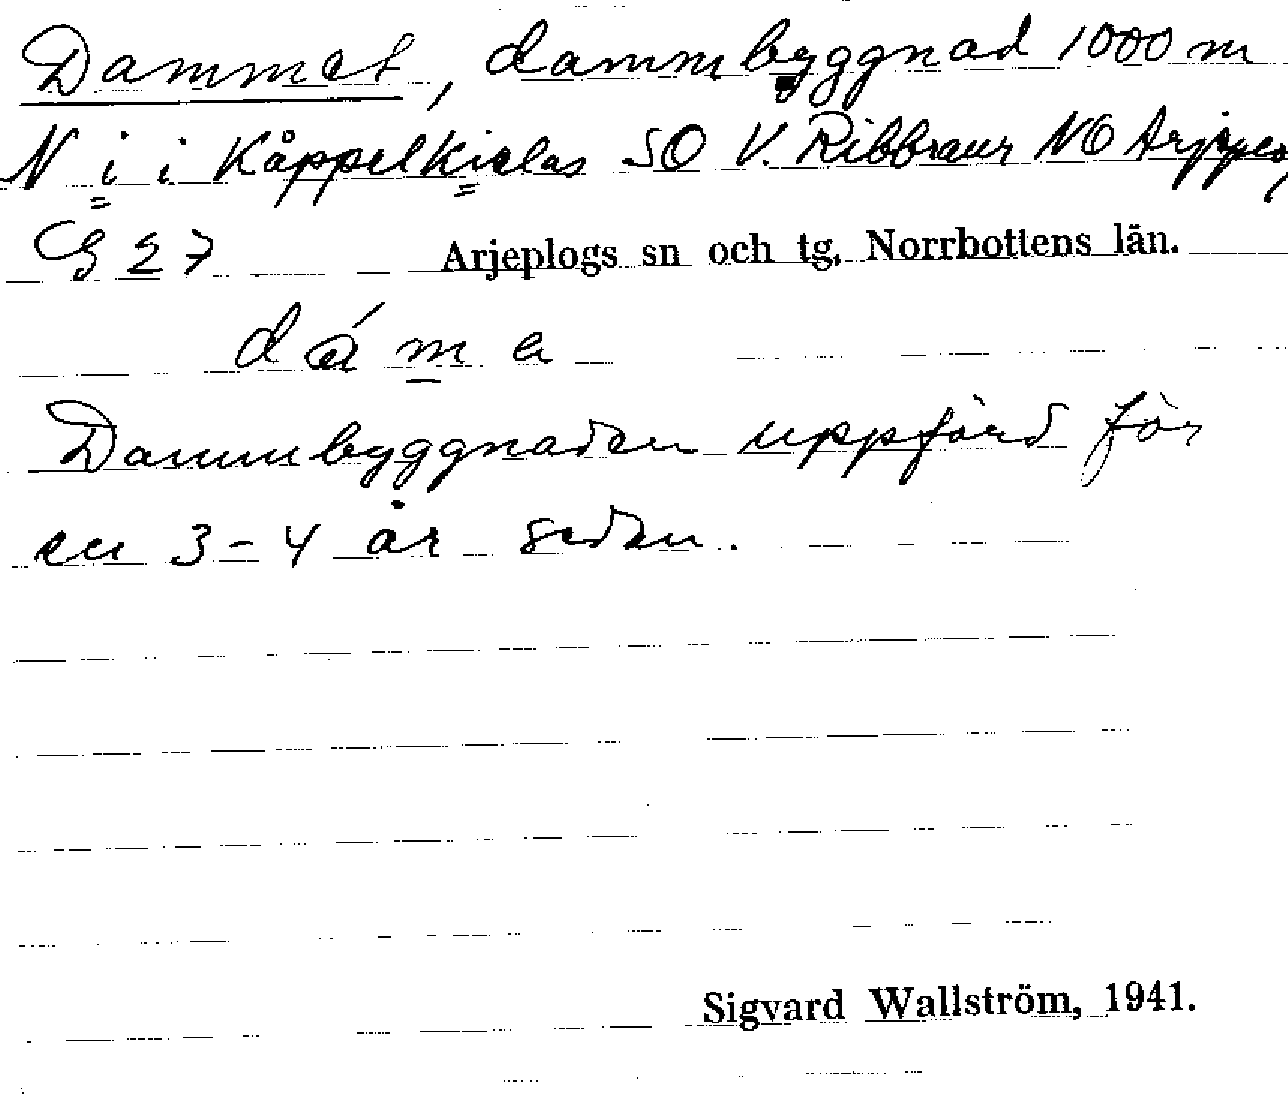 Dammet, dammbyggnad 1000 m
N i i Kåppelkielas SO V. Ribbraur NO Arjeplog
G 27 Arjeplogs sn och tg, Norrbottens län.
dáme
Dammbyggnaden uppförd för
en 3-4 år sedan.
Sigvard Wallström, 1941.